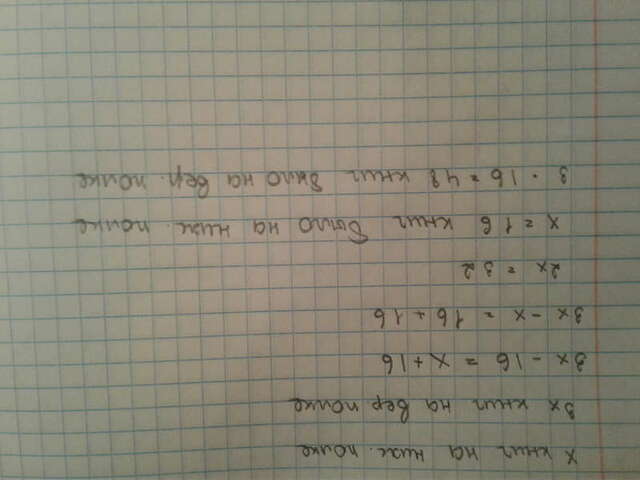 x книг на ниж. полке
3x книг на вер. полке
3x - 16 = x + 16
3x - x = 16 + 16
2x = 32
x = 16 книг было на ниж. полке
3 · 16 = 48 книг было на вер. полке